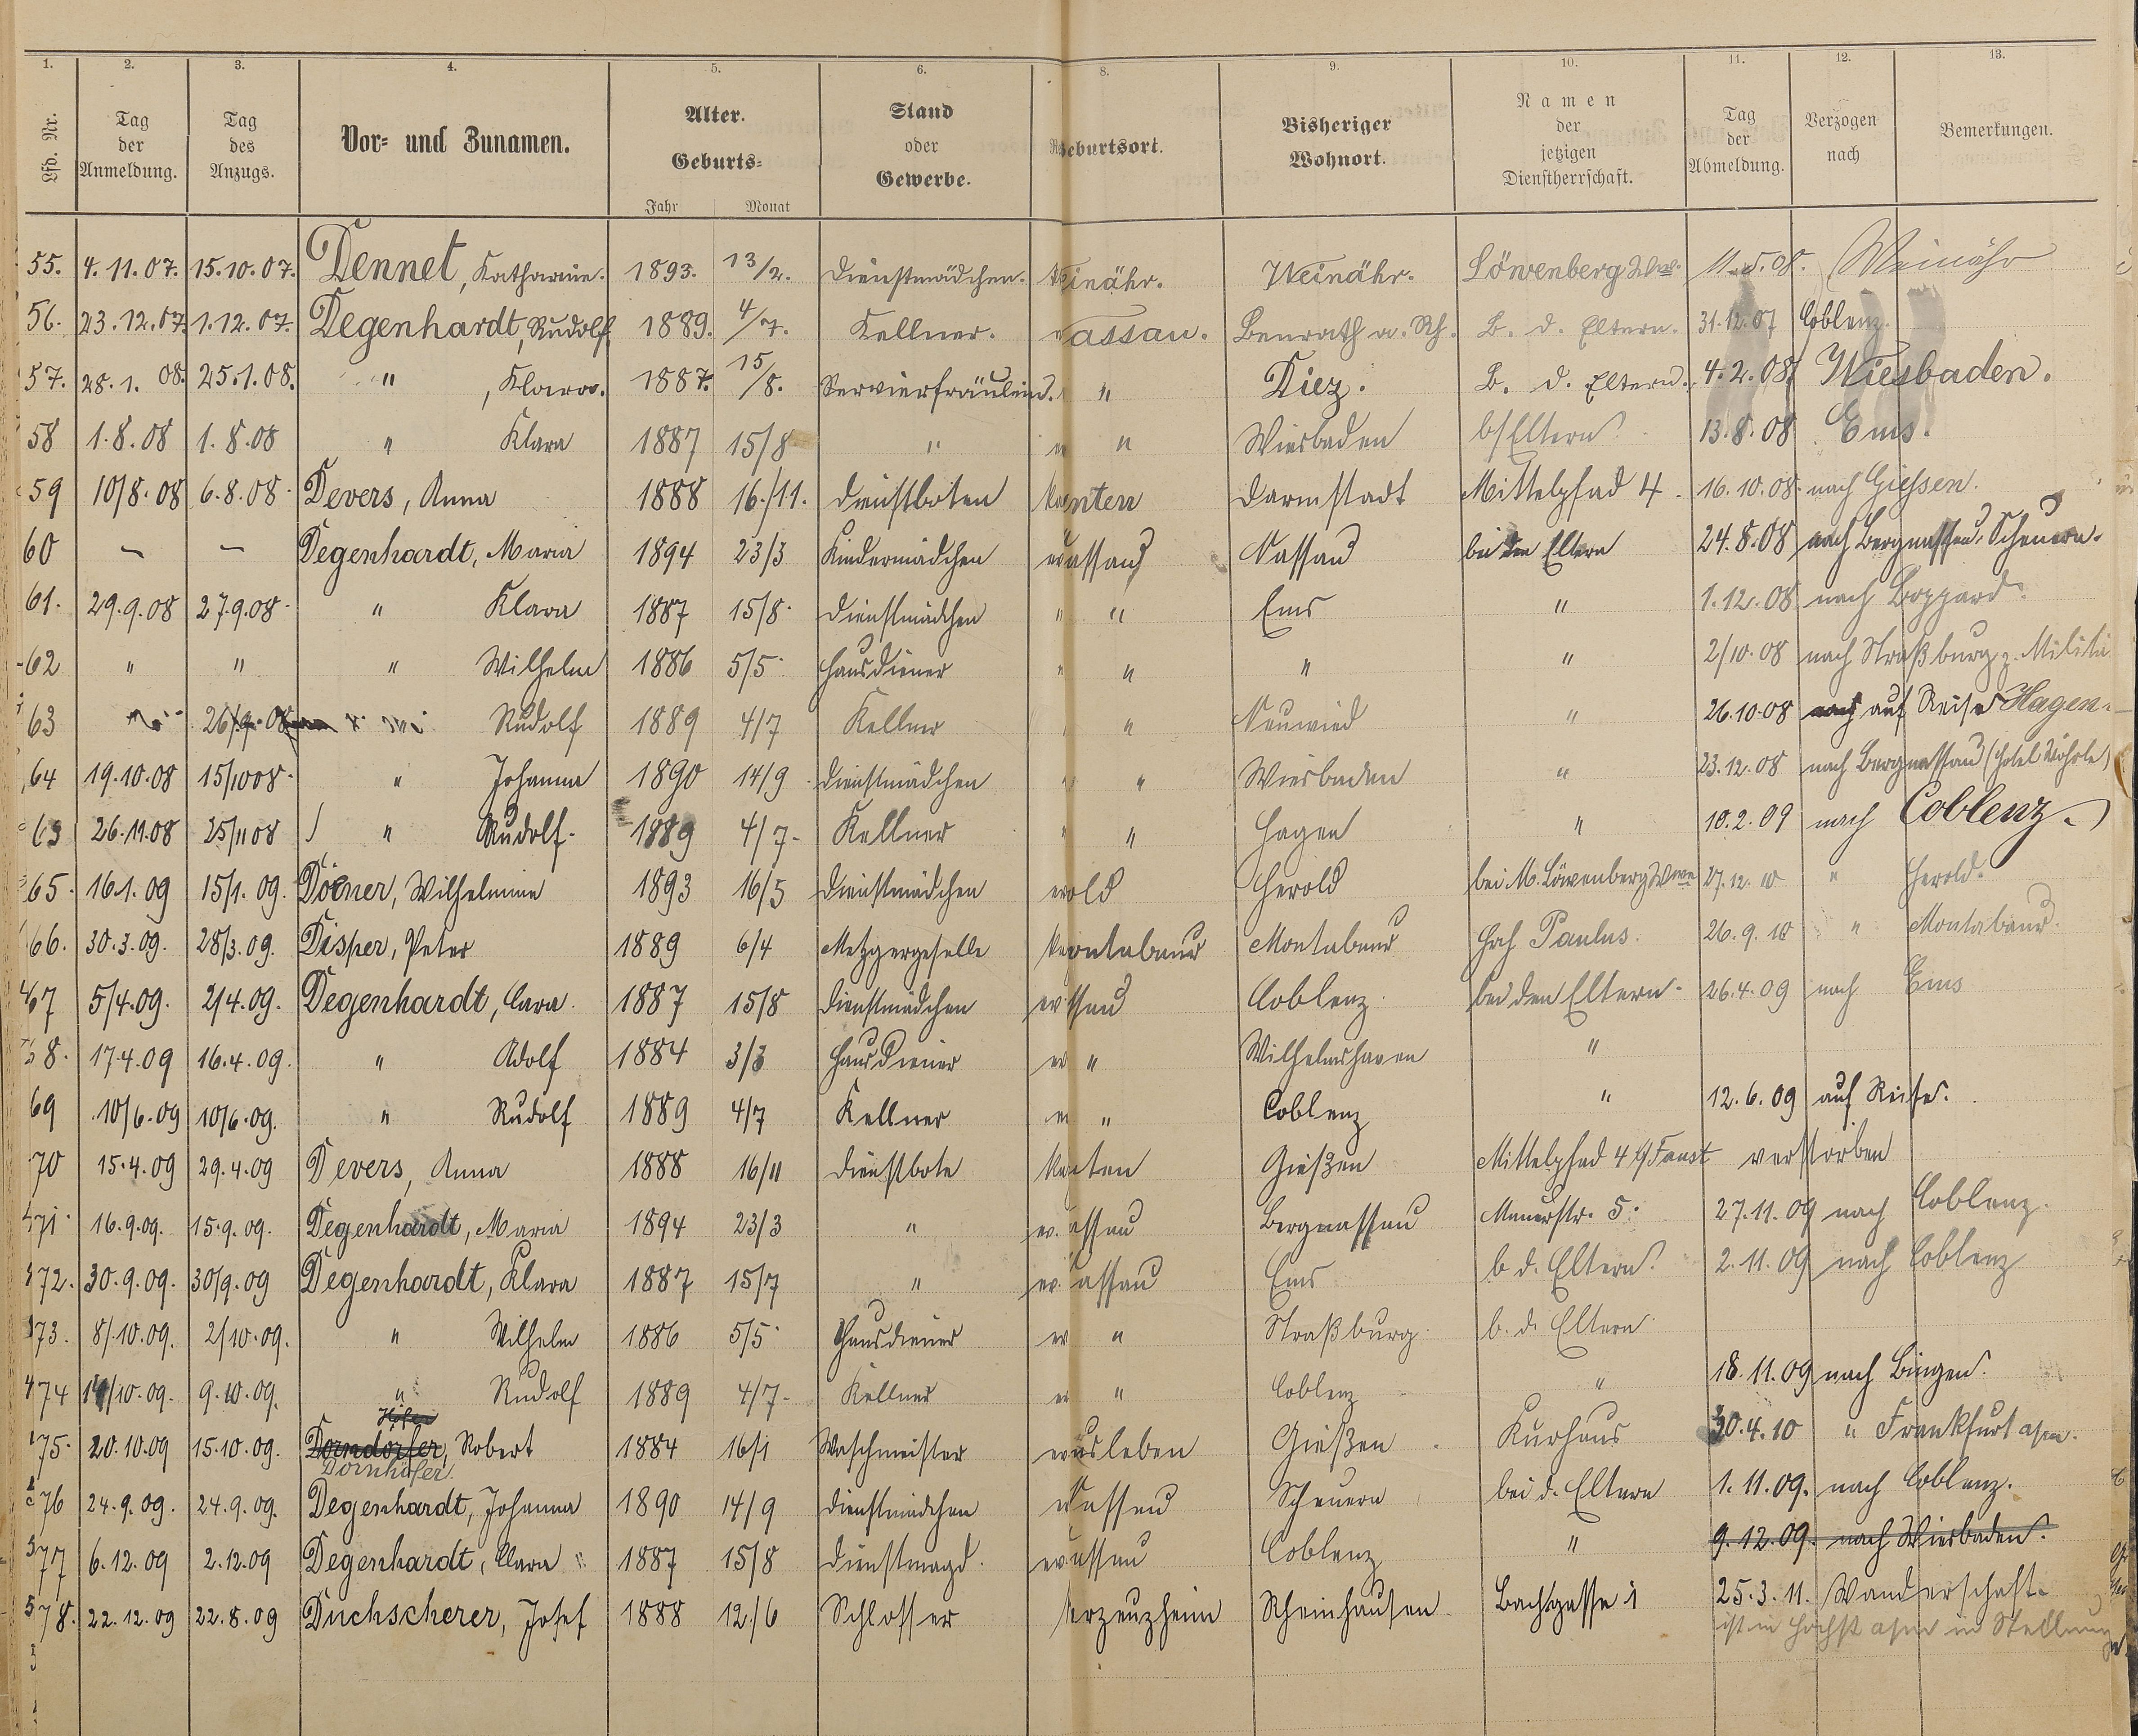 1. 2. 3. 4. 5. 6. 8. 9. 10. 11. 12. 13.
Lfd. Nr. Tag der Anmeldung. Tag des Anzugs. Vor- und Zunamen. Alter. Geburts- Jahr Monat Stand oder Gewerbe. Geburtsort. Bisheriger Wohnort. Namen der jetzigen Dienstherrschaft. Tag der Abmeldung. Verzogen nach Bemerkungen.
55. 4.11.07. 15.10.07. Dennet, Katharine. 1893. 13/2. Dienstmädchen. einähr. Weinähr. Löwenberg Wwe. 11.5.08. Weinähr
56. 23.12.07. 1.12.07. Degenhardt, Rudolf 1889. 4/7. Kellner. assau. Benrath a. Rh. B. d. Eltern. 31.12.07 Coblenz.
57. 28.1.08. 25.1.08. " , Klara. 1887. 15/8. Servierfräulein. " Diez. B. d. Eltern. 4.2.08. Wiesbaden.
58 1.8.08 1.8.08 " Klara 1887 15/8 " " Wiesbaden b/Eltern 13.8.08 Ems.
59 10/8.08 6.8.08. Devers, Anna 1888 16./11. Dienstboten nten Darmstadt Mittelpfad 4. 16.10.08. nach Giessen.
60 – – Degenhardt, Maria 1894 23/3 Kindermädchen assau Nassau bei den Eltern 24.8.08 nach Bergnassau-Scheuern.
61. 29.9.08 27.9.08. " Klara 1887 15/8. Dienstmädchen " " Ems " 1.12.08 nach Boppard.
62 " " " Wilhelm 1886 5/5. Hausdiener " " " " 2/10.08 nach Straßburg z. Militä
63 26/9.08 Rudolf 1889 4/7 Kellner " Neuwied " 26.10.08 auf Reise Hagen.
64 19.10.08 15/10 08. " Johanna 1890 14/9 Dienstmädchen " " Wiesbaden " 23.12.08 nach Bergnassau (Hotel
63 26.11.08 25/11 08 " Rudolf. 1889 4/7- Kellner " " Hagen " 10.2.09 nach Coblenz.
65. 16.1.09 15/1.09. Dörner, Wilhelmine 1893 16/5 Dienstmädchen erold Herold bei M. Löwenberg Wwe 27.12.10 " Herold.
66. 30.3.09. 28/3.09. Disper, Peter 1889 6/4 Metzgergeselle ontabaur Montabaur Hch Paulus. 26.9.10 " Montabaur.
67 5/4.09. 2/4.09. Degenhardt, Clara. 1887 15/8 Dienstmädchen ssau Coblenz. bei den Eltern- 26.4.09 nach Ems
68. 17.4.09 16.4.09. " Adolf 1884 3/3 Hausdiener " Wilhelmshaven "
69 10/6.09 10/6.09. " Rudolf 1889 4/7 Kellner " Coblenz " 12.6.09 auf Reise.
70 15.4.09 29.4.09 Devers, Anna 1888 16/11 Dienstbote ten Gießen Mittelpfad 4 b/Faust verstorben
71. 16.9.09. 15.9.09. Degenhardt, Maria 1894 23/3 " assau Bergnassau Mauerstr. 5. 27.11.09 nach Coblenz.
72. 30.9.09. 30/9.09 Degenhardt, Klara 1887 15/7 " assau Ems b d. Eltern. 2.11.09 nach Coblenz
73. 8/10.09. 2/10.09. " Wilhelm 1886 5/5. Hausdiener " Straßburg. b. d. Eltern
74 14/10.09. 9.10.09. " Rudolf 1889 4/7- Kellner " Coblenz " 18.11.09 nach Bingen.
Höfer
75. 20.10.09 15.10.09. Dorndorfer, Robert 1884 16/1 Waschmeister usleben Gießen. Kurhaus 30.4.10 " Frankfurt a/m.
Dornhöfer
76 24.9.09. 24.9.09. Degenhardt, Johanna 1890 14/9 Dienstmädchen assau Scheuern bei d. Eltern 1.11.09. nach Coblenz.
77 6.12.09 2.12.09 Degenhardt, Clara 1887 15/8 Dienstmagd. assau Coblenz " 9.12.09. nach Wiesbaden.
78. 22.12.09 22.8.09 Duchscherer, Josef 1888 12/6 Schlosser erzeuzheim Rheinhausen. Bachgasse 1 25.3.11. Wanderschaft.
ist in Höchst a/m in Stellung